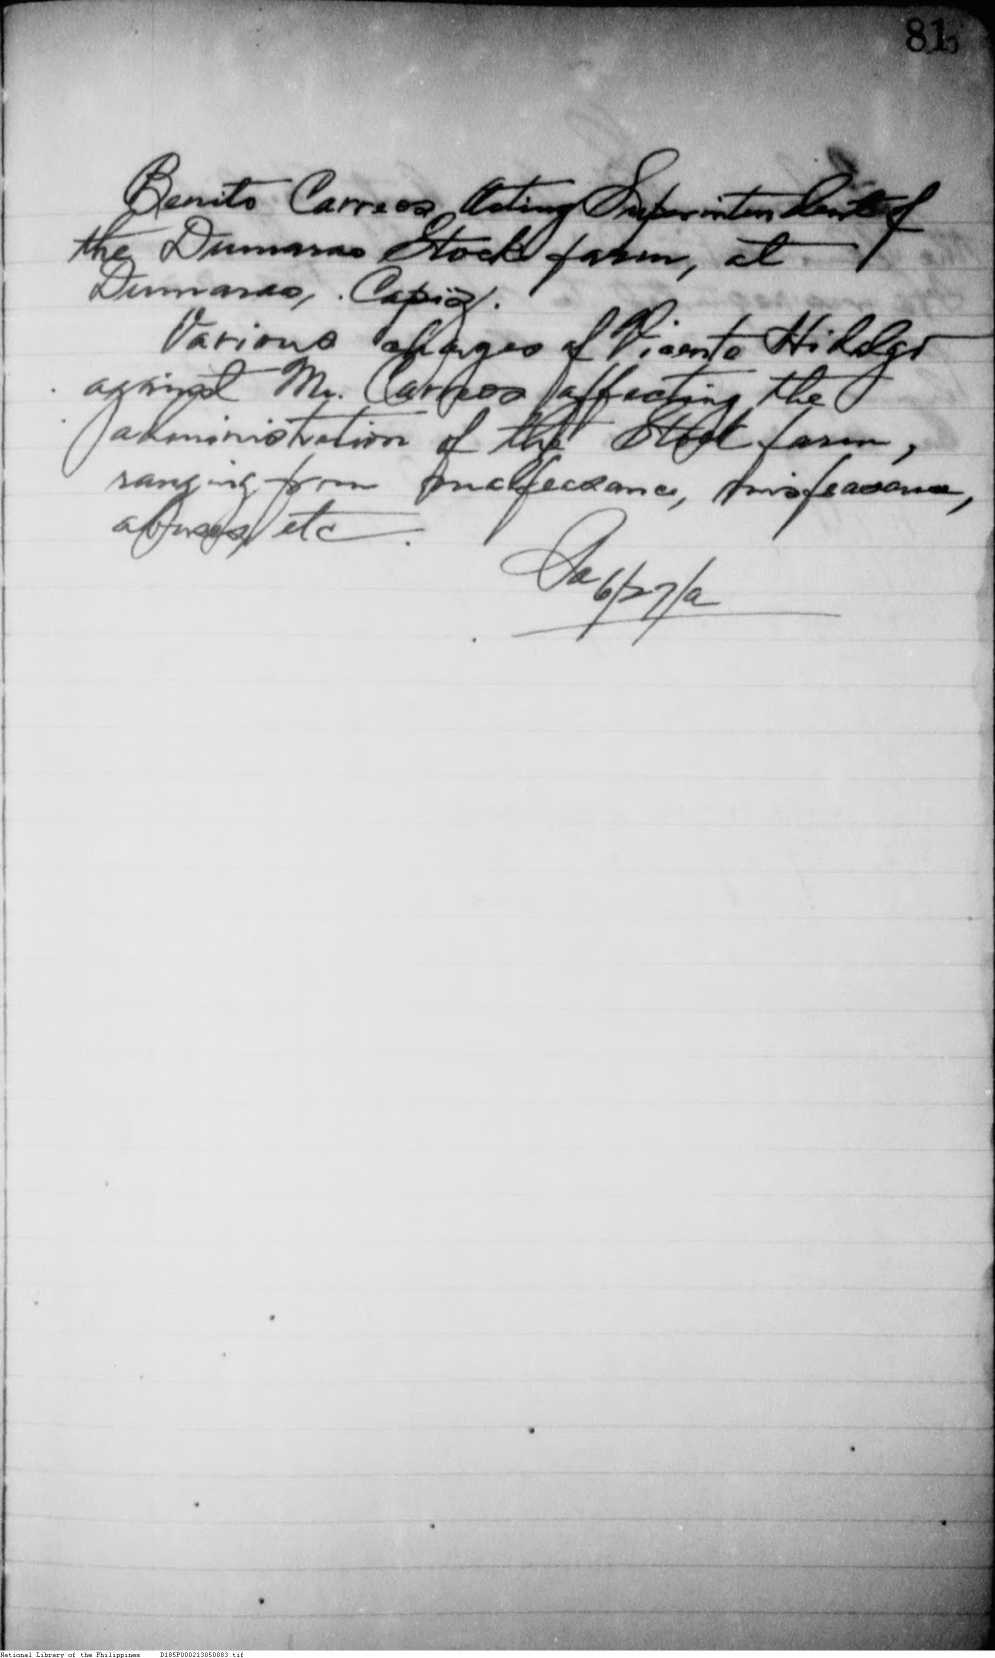 81
Benito Carreon Acting Superintendent of
the Dumarao Stock farm, at
Dumarao, Capiz.
Various charges of Vicente Hidalgo
against Mr. Carreon affecting the
administration of the Stock farm,
ranging from malfeasance, misfeasance,
abuses, etc.
6/27/
National Library of the Philippines D185P000213050083.tif